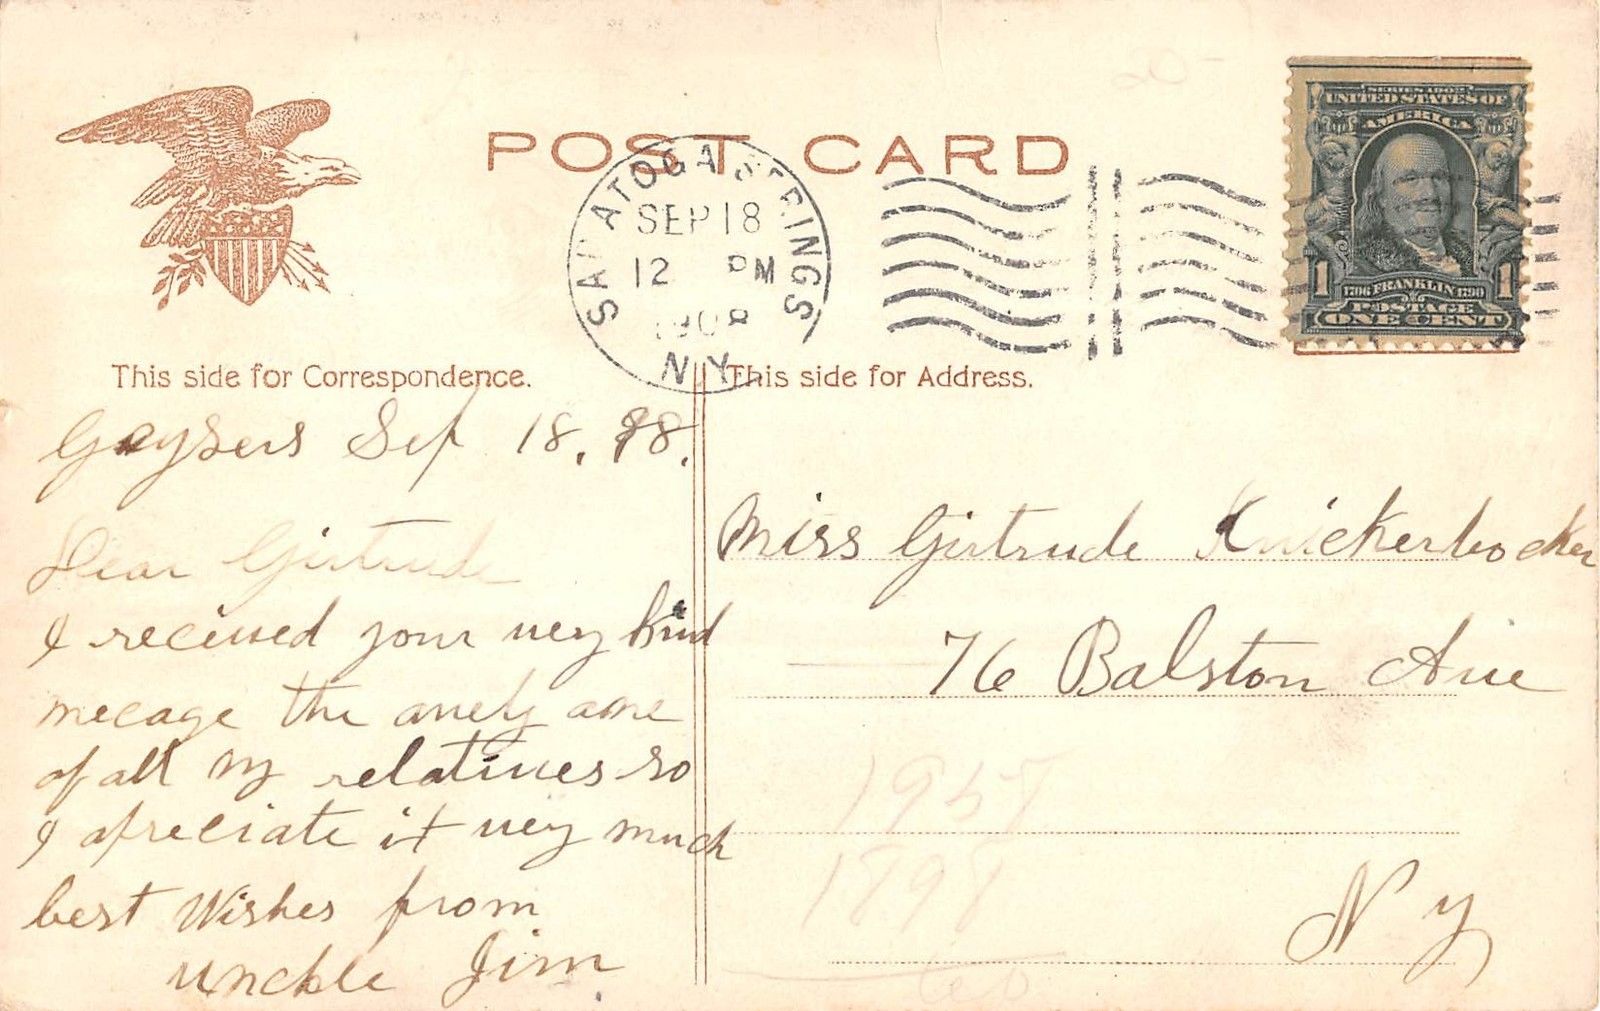 POST CARD
SARATOGA SPRINGS
SEP 18
12 PM
1908
N.Y.
SERIES 1902
UNITED STATES OF
AMERICA
1 1706 FRANKLIN 1790 1
POSTAGE
ONE CENT
This side for Correspondence.
This side for Address.
Geysers Sep 18. 98.
Dear Girtrude
I recieved your very kind
mecage the onely one
of all my relatives so
I apreciate it very much
best Wishes from
unckle Jim
Miss Girtrude Knickerbocker
76 Balston Ave
N Y
20-
1957
1898